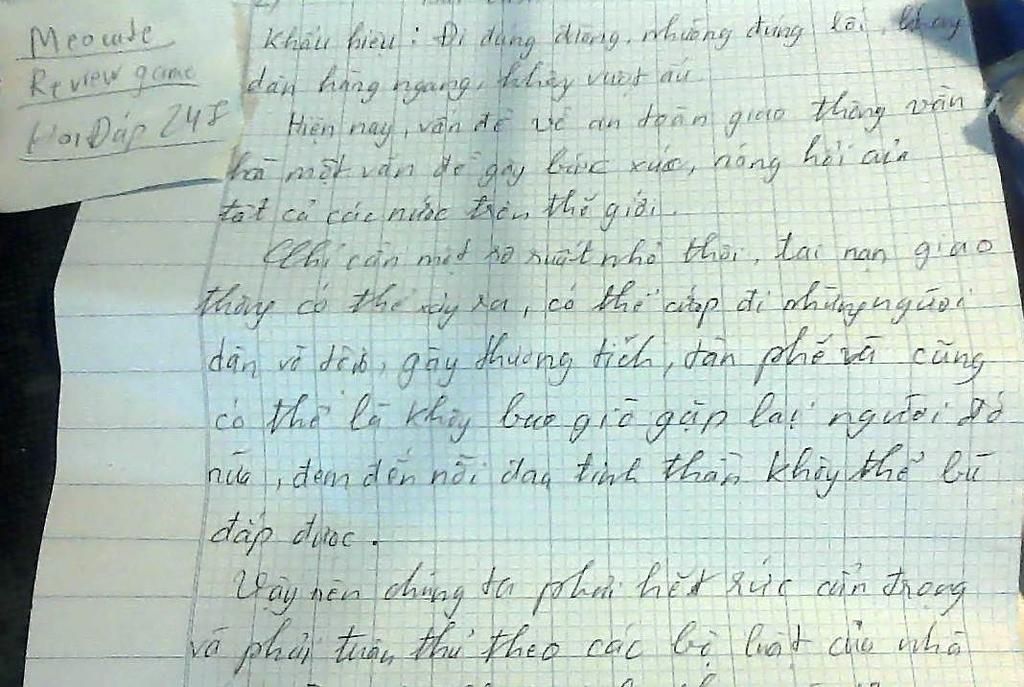 Meowde
Review game
HoiĐáp 248
Khẩu hiệu: Đi đúng đường, nhường đúng lối, không
dàn hàng ngang, không vượt ẩu
Hiện nay, vấn đề về an toàn giao thông vẫn
là một vấn đề gây bức xúc, nóng hổi của
tất cả các nước trên thế giới.
Chỉ cần một sơ suất nhỏ thôi, tai nạn giao
thông có thể xảy ra, có thể cướp đi những người
dân vô tội, gây thương tích, tàn phế và cũng
có thể là không bao giờ gặp lại người đó
nữa, đem đến nỗi đau tinh thần không thể bù
đắp được.
Vậy nên chúng ta phải hết sức cẩn trọng
và phải tuân thủ theo các bộ luật của nhà